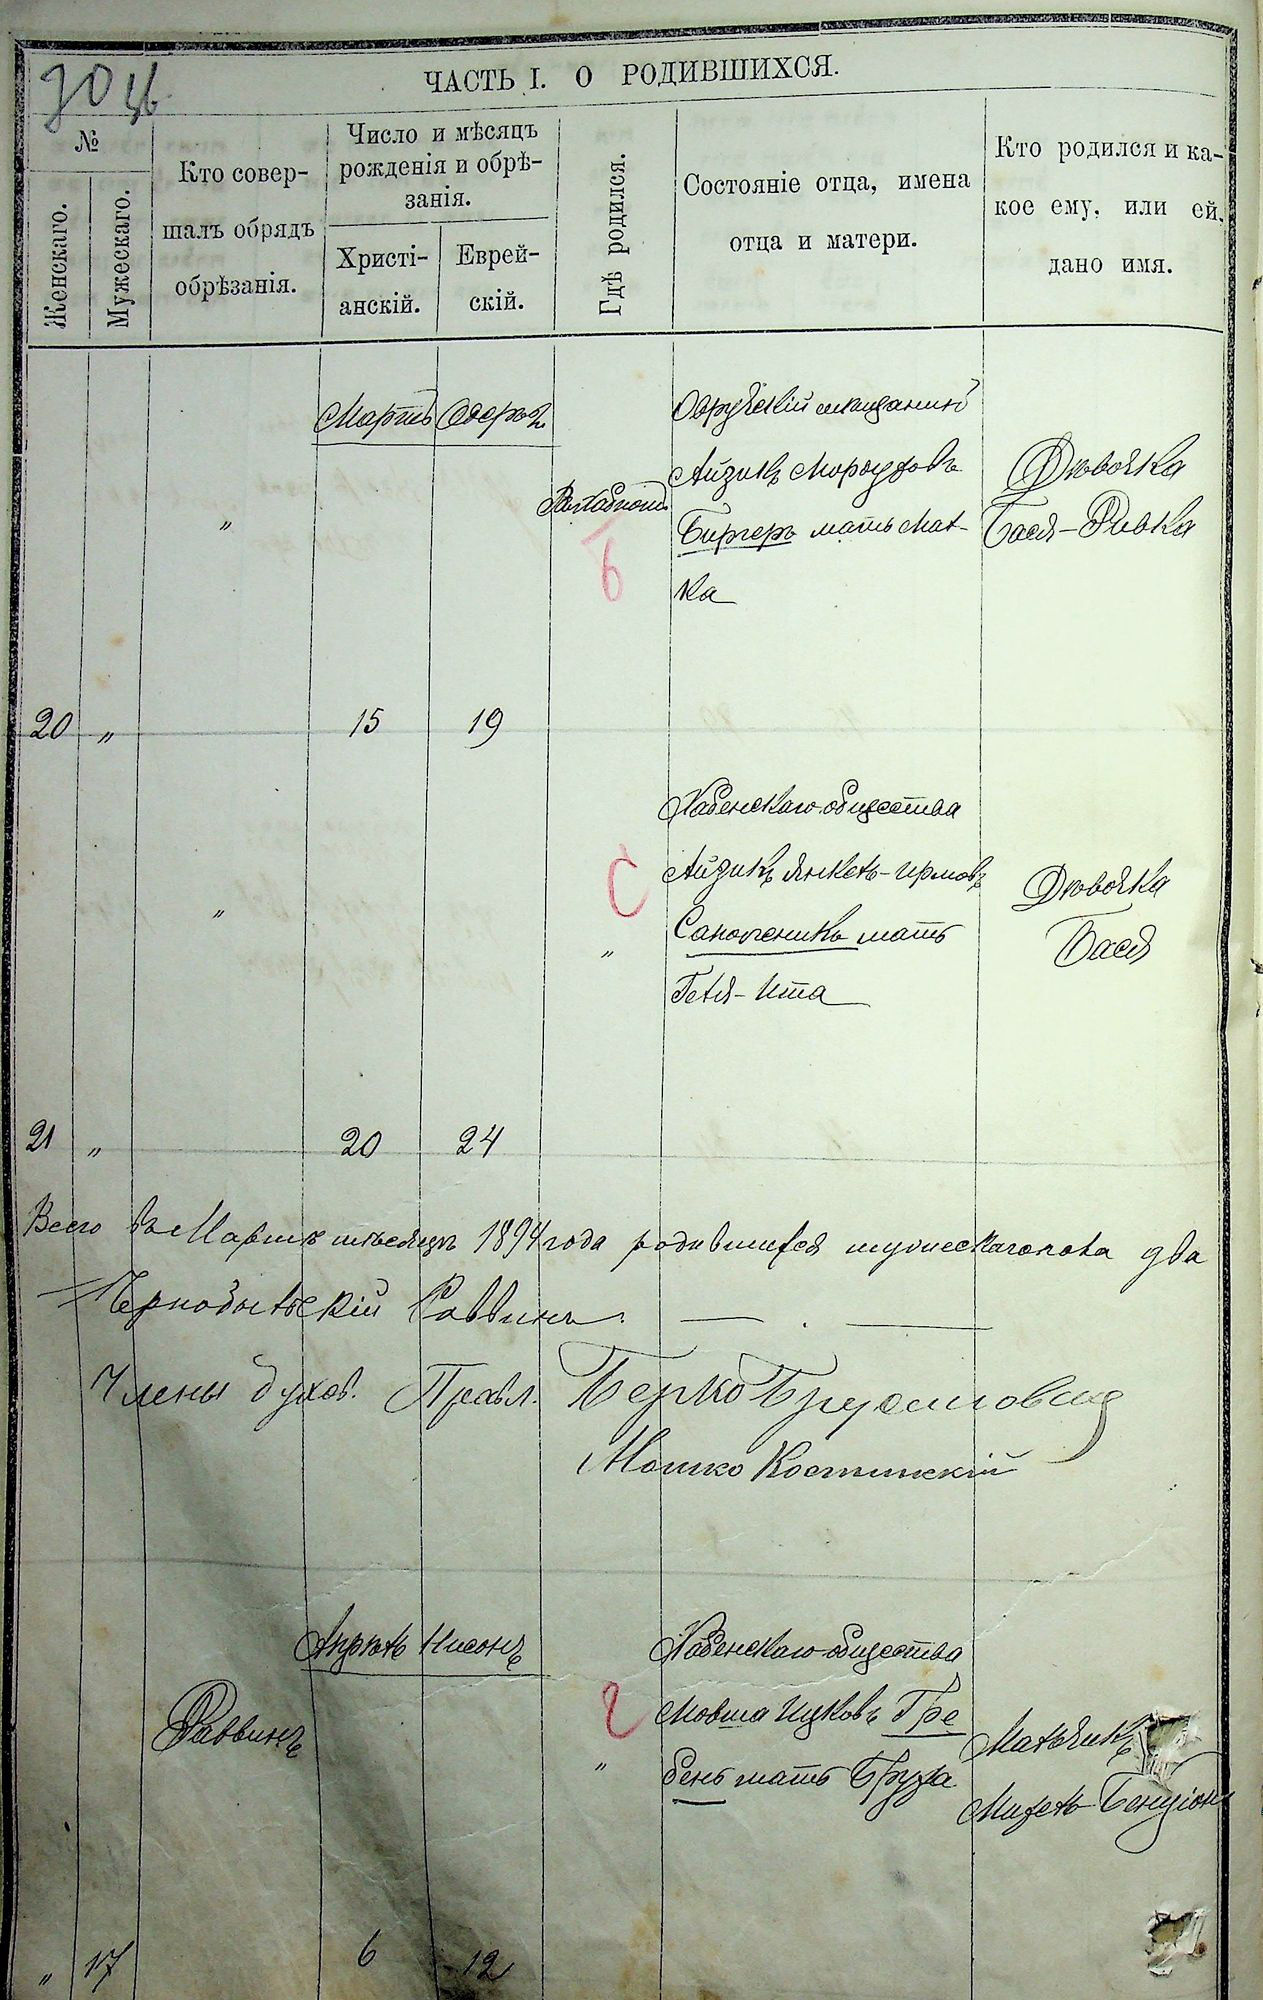 ЧАСТЬ I. О РОДИВШИХСЯ.
№
Женскаго.
Мужескаго.
Кто совер-
шалъ обрядъ
обрѣзанія.
Число и мѣсяцъ
рожденія и обрѣ-
занія.
Христі-
анскій.
Еврей-
скій.
Гдѣ родился.
Состояніе отца, имена
отца и матери.
Кто родился и ка-
кое ему, или ей,
дано имя.
Мартъ
Одеръ
Овручскій мещанинъ
Айзикъ Мордуховъ
Биргеръ мать Мал-
ка
Дѣвочка
Бася-Ривка
"
Б
20 " 15 19
Хабенскаго общества
Айзикъ Янкель-Ирмовъ
мать
Гетля-Ита
Дѣвочка
Бася
"
С
"
21 " 20 24
Всего въ Мартѣ мѣсяцѣ 1894 года родившихся мужескаго пола два
Чернобыльскій Раввинъ
Члены духов. Правл. Берко
Мошко Костинскій
Апрѣль Нисонъ
Раввинъ
Хабенскаго общества
Мовша Ицковъ Гре
бень мать Бруха
Мальчикъ
Михель-Бенціонъ
Г
"
" 17 6 12